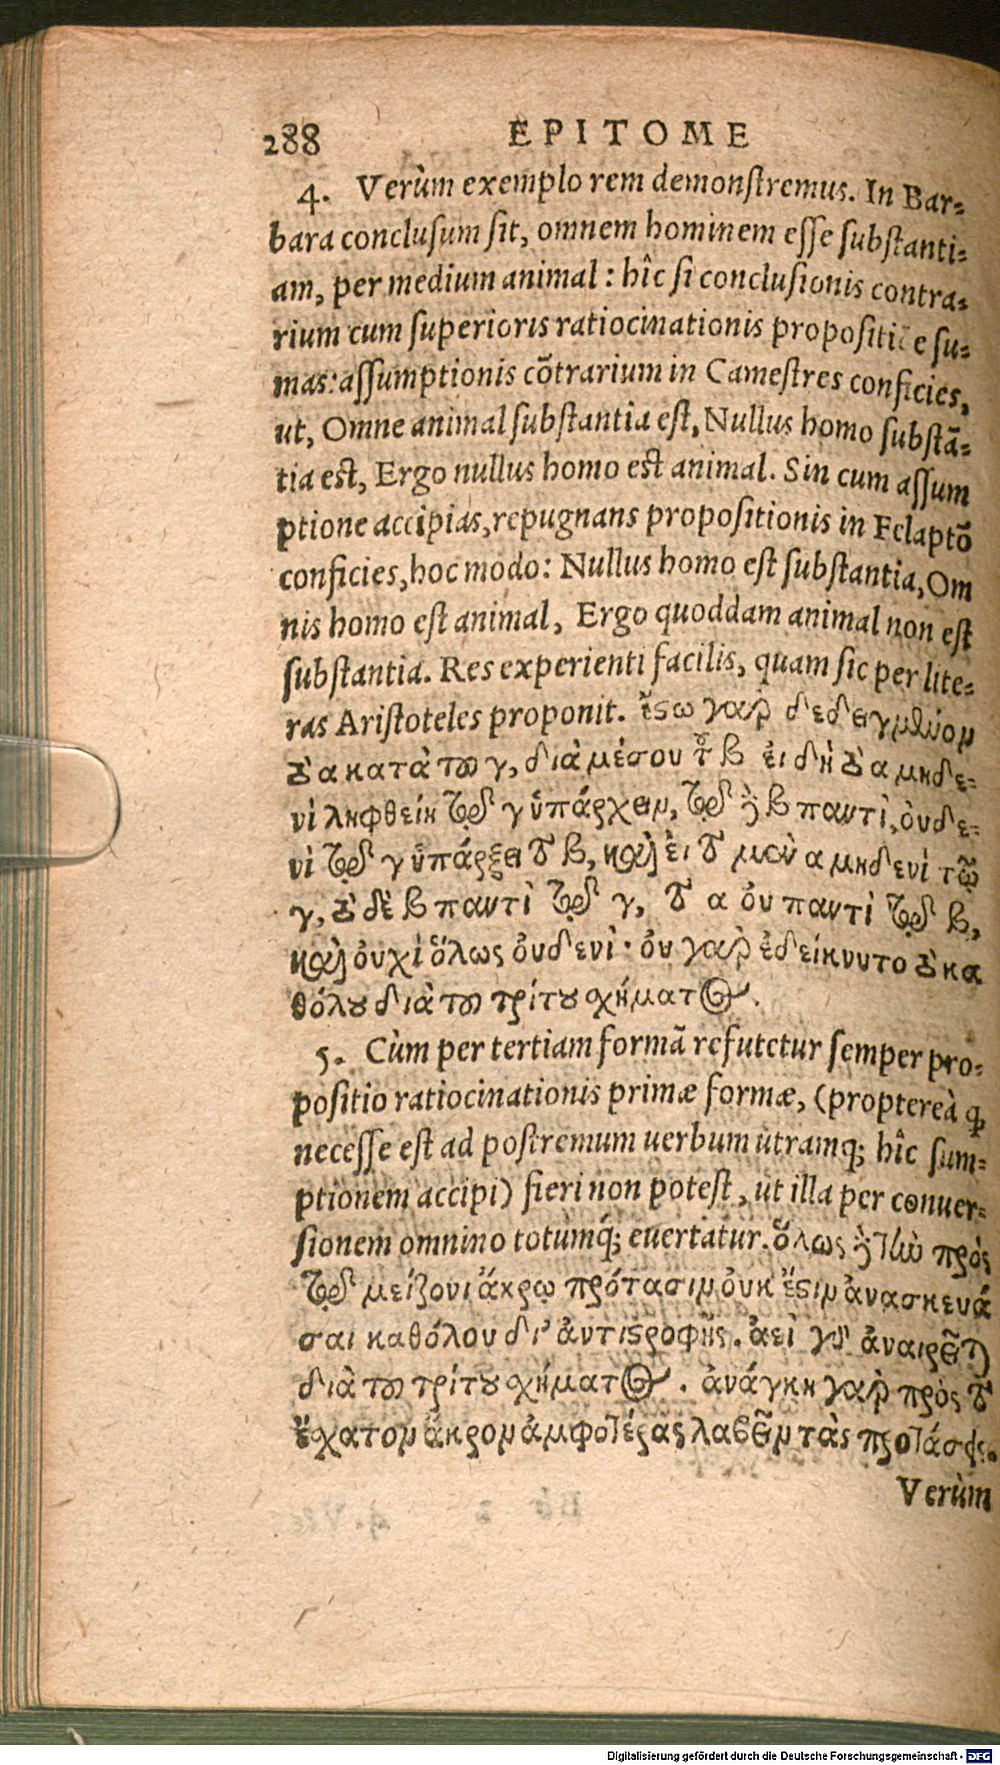 288 EPITOME
4. Verùm exemplo rem demonſtremus. In Bar-
bara concluſum ſit, omnem hominem eſſe ſubſtanti-
am, per medium animal: hîc ſi concluſionis contra-
rium cum ſuperioris ratiocinationis propoſiti e ſu-
mas: aſſumptionis cõtrarium in Cameſtres conficies,
ut, Omne animal ſubſtantia eſt, Nullus homo ſubſtã-
tia eſt, Ergo nullus homo eſt animal. Sin cum aſſum
ptione accipias, repugnans propoſitionis in Felaptõ
conficies, hoc modo: Nullus homo eſt ſubſtantia, Om
nis homo eſt animal, Ergo quoddam animal non eſt
ſubſtantia. Res experienti facilis, quam ſic per lite-
ras Ariſtoteles proponit. ἔϛω γαρ δεδειγμένον
τὸ α κατὰ τοῦ γ, διὰ μέσου τοῦ β εἰ δὴ τὸ α μηδε-
νὶ ληφθείη τῷ γ ὑπάρχειν, τῷ δὲ β παντὶ, ὀυδε-
νὶ τῷ γ ὑπάρξει τὸ β, καὶ εἰ τὸ μὲν α μηδενὶ τῷ
γ, τὸ δὲ β παντὶ τῷ γ, τὸ α ὀυ παντὶ τῷ β,
καὶ ὀυχὶ ὅλως ὀυδενὶ· ὀυ γαρ ἐδείκνυτο τὸ κα
θόλȣ διὰ τοῦ τρίτȣ σχήματος.
5. Cùm per tertiam formã refutetur ſemper pro-
poſitio ratiocinationis primæ formæ, (propterea ꝙ
neceſſe eſt ad poſtremum uerbum utramq; hîc ſum-
ptionem accipi) fieri non poteſt, ut illa per conuer-
ſionem omnino totumq́; euertatur. ὅλως δὲ τὴν πρὸς
τῷ μείζονι ἄκρῳ πρότασιν ὀυκ ἔϛιν ἀνασκευά
σαι καθόλου δι' ἀντιϛροφῆς. ἀεὶ γὰρ ἀναιρεῖται
διὰ τοῦ τρίτȣ σχήματος. ἀνάγκη γαρ πρὸς τὸ
ἔχατον ἄκρον ἀμφοτέρας λαβεῖν τὰς προτάσεις.
Verùm
Digitalisierung gefördert durch die Deutsche Forschungsgemeinschaft - DFG